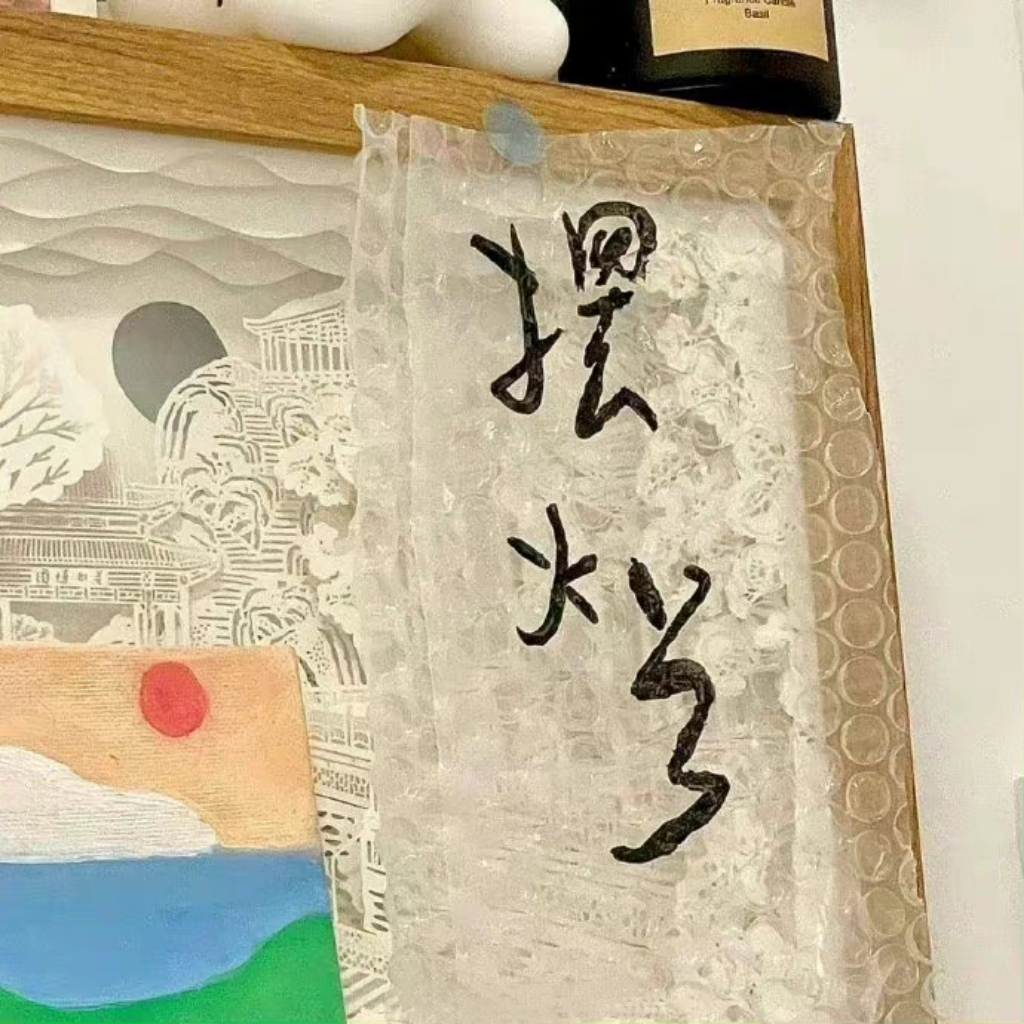 Fragrance Candle
Basil
摆烂